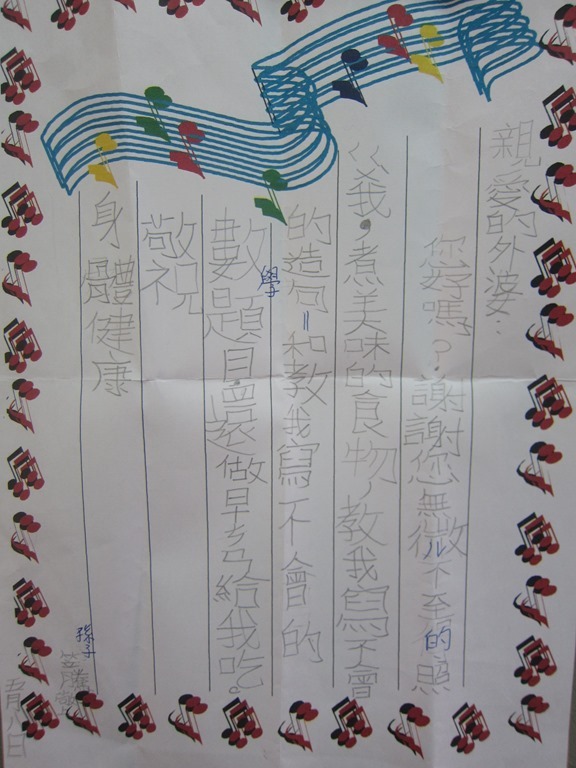 親愛的外婆：
您好嗎？謝謝您無微不至的照
ㄍㄨ我，煮美味的食物，教我寫不會
的造句，和教我寫不會的
數學題目，還做早ㄘㄢ給我吃。
敬祝
身體健康
孫子
五月八日